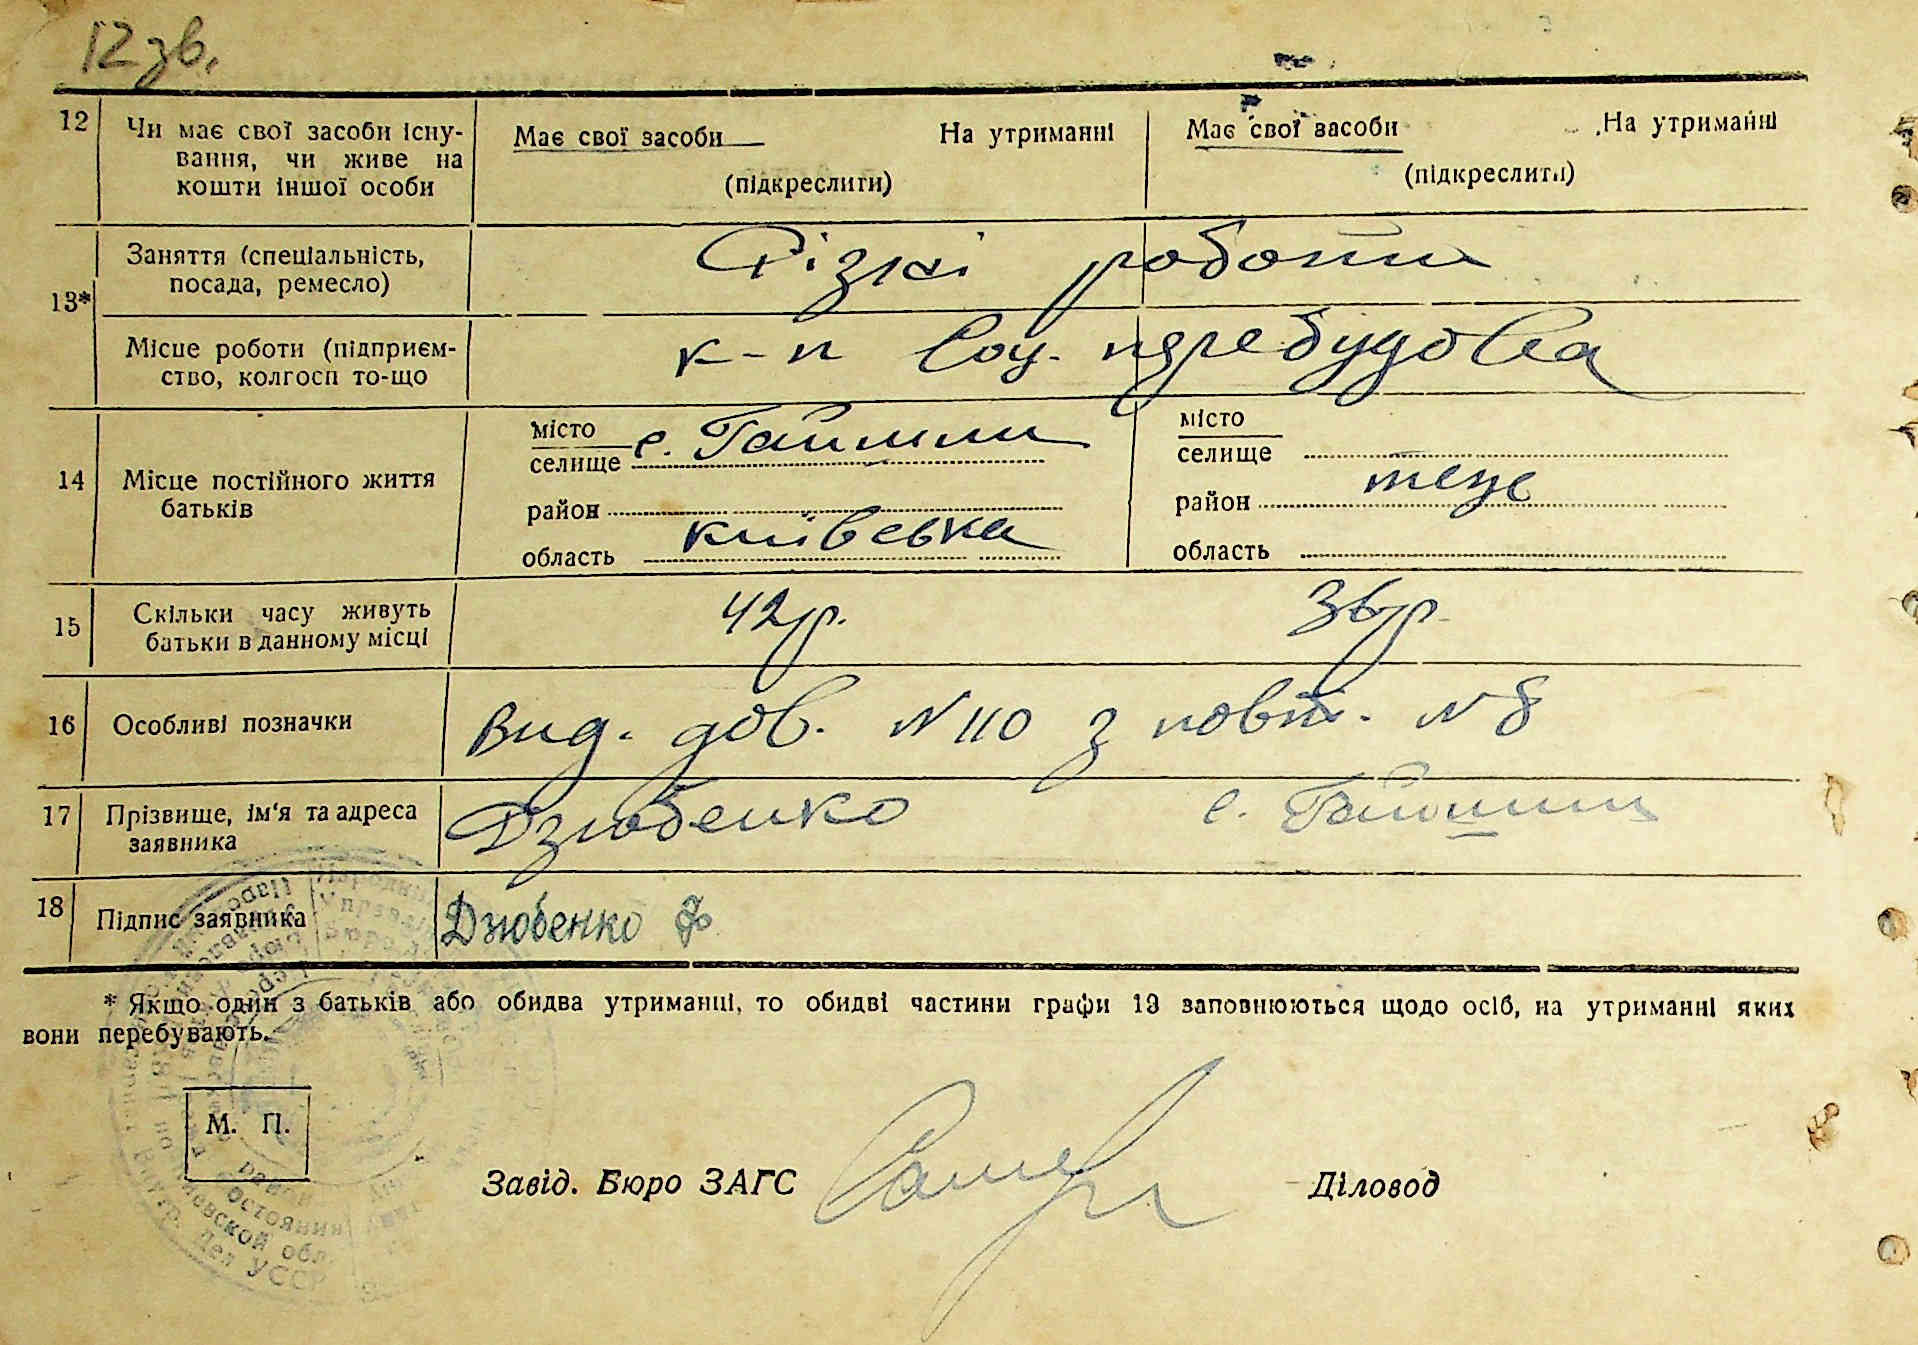 12 зв.
12 Чи має свої засоби існу-
вання, чи живе на
кошти іншої особи
Має свої засоби На утриманні
(підкреслити)
Має свої засоби На утриманні
(підкреслити)
13*
Заняття (спеціальність,
посада, ремесло)
Різні роботи
Місце роботи (підприєм-
ство, колгосп то-що
к-п Соц. перебудова
14 Місце постійного життя
батьків
місто
селище с. Гайшин
район
область київська
місто
селище
район теж
область
15 Скільки часу живуть
батьки в данному місці
42 р. 36 р.
16 Особливі позначки
Вид. дов. N 110 з повт. N 8
17 Прізвище, ім'я та адреса
заявника
Дзюбенко с. Гайшин
18 Підпис заявника
Дзюбенко Ф
* Якщо один з батьків або обидва утриманці, то обидві частини графи 13 заповнюються щодо осіб, на утриманні яких
вони перебувають.
М. П.
Завід. Бюро ЗАГС Діловод